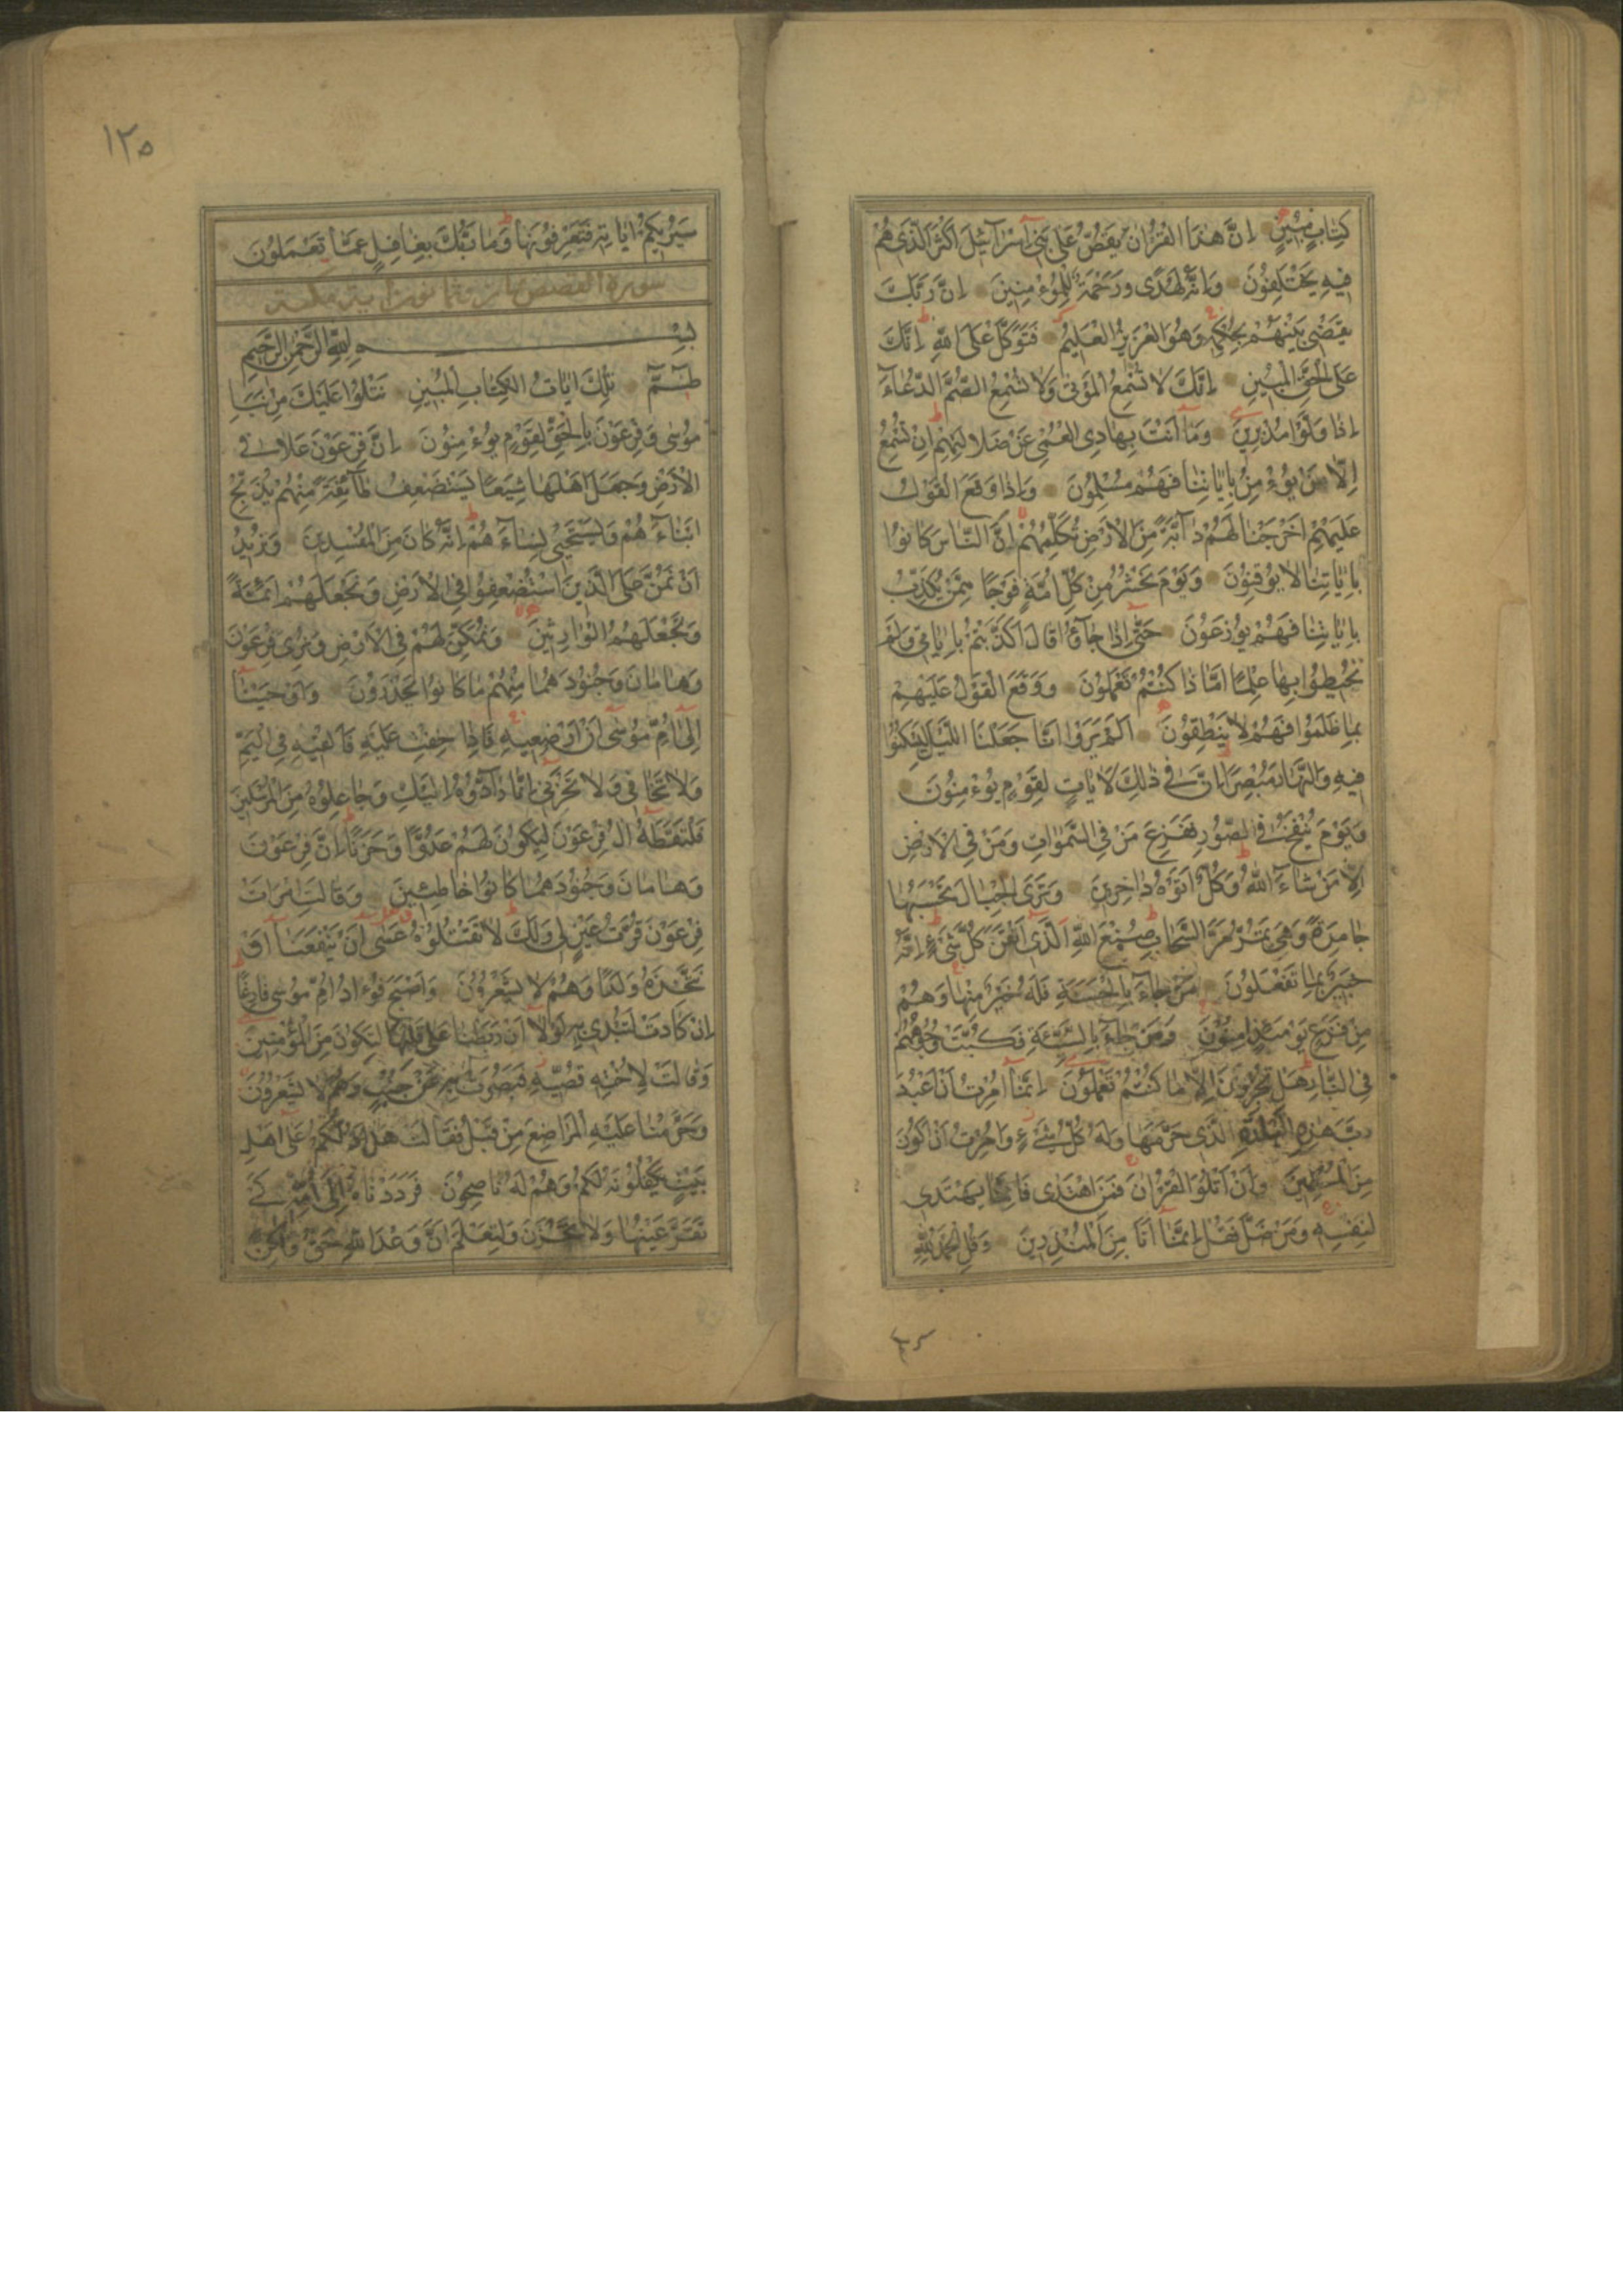 كِتَابٍ مُبِينٍ اِنَّ هٰذَا الْقُرْاٰنَ يَقُصُّ عَلٰى بَنِى اِسْرَآئِيلَ اَكْثَرَ الَّذِى هُمْ
فِيهِ يَخْتَلِفُونَ وَاِنَّهُ لَهُدًى وَرَحْمَةٌ لِلْمُؤْمِنِينَ اِنَّ رَبَّكَ
يَقْضِى بَيْنَهُمْ بِحُكْمِهِ وَهُوَ الْعَزِيزُ الْعَلِيمُ فَتَوَكَّلْ عَلَى اللّٰهِ اِنَّكَ
عَلَى الْحَقِّ الْمُبِينِ اِنَّكَ لَا تُسْمِعُ الْمَوْتٰى وَلَا تُسْمِعُ الصُّمَّ الدُّعَآءَ
اِذَا وَلَّوْا مُدْبِرِينَ وَمَا اَنْتَ بِهَادِى الْعُمْىِ عَنْ ضَلَالَتِهِمْ اِنْ تُسْمِعُ
اِلَّا مَنْ يُؤْمِنُ بِاٰيَاتِنَا فَهُمْ مُسْلِمُونَ وَاِذَا وَقَعَ الْقَوْلُ
عَلَيْهِمْ اَخْرَجْنَا لَهُمْ دَآبَّةً مِنَ الْاَرْضِ تُكَلِّمُهُمْ اِنَّ النَّاسَ كَانُوا
بِاٰيَاتِنَا لَا يُوقِنُونَ وَيَوْمَ نَحْشُرُ مِنْ كُلِّ اُمَّةٍ فَوْجًا مِمَّنْ يُكَذِّبُ
بِاٰيَاتِنَا فَهُمْ يُوزَعُونَ حَتّٰى اِذَا جَآؤُا قَالَ اَكَذَّبْتُمْ بِاٰيَاتِى وَلَمْ
تُحِيطُوا بِهَا عِلْمًا اَمَّا ذَا كُنْتُمْ تَعْمَلُونَ وَوَقَعَ الْقَوْلُ عَلَيْهِمْ
بِمَا ظَلَمُوا فَهُمْ لَا يَنْطِقُونَ اَلَمْ يَرَوْا اَنَّا جَعَلْنَا اللَّيْلَ لِيَسْكُنُوا
فِيهِ وَالنَّهَارَ مُبْصِرًا اِنَّ فِى ذٰلِكَ لَاٰيَاتٍ لِقَوْمٍ يُؤْمِنُونَ
وَيَوْمَ يُنْفَخُ فِى الصُّورِ فَفَزِعَ مَنْ فِى السَّمٰوَاتِ وَمَنْ فِى الْاَرْضِ
اِلَّا مَنْ شَآءَ اللّٰهُ وَكُلٌّ اَتَوْهُ دَاخِرِينَ وَتَرَى الْجِبَالَ تَحْسَبُهَا
جَامِدَةً وَهِىَ تَمُرُّ مَرَّ السَّحَابِ صُنْعَ اللّٰهِ الَّذِى اَتْقَنَ كُلَّ شَىْءٍ اِنَّهُ
خَبِيرٌ بِمَا تَفْعَلُونَ مَنْ جَآءَ بِالْحَسَنَةِ فَلَهُ خَيْرٌ مِنْهَا وَهُمْ
مِنْ فَزَعٍ يَوْمَئِذٍ اٰمِنُونَ وَمَنْ جَآءَ بِالسَّيِّئَةِ فَكُبَّتْ وُجُوهُهُمْ
فِى النَّارِ هَلْ تُجْزَوْنَ اِلَّا مَا كُنْتُمْ تَعْمَلُونَ اِنَّمَا اُمِرْتُ اَنْ اَعْبُدَ
رَبَّ هٰذِهِ الْبَلْدَةِ الَّذِى حَرَّمَهَا وَلَهُ كُلُّ شَىْءٍ وَاُمِرْتُ اَنْ اَكُونَ
مِنَ الْمُسْلِمِينَ وَاَنْ اَتْلُوَا الْقُرْاٰنَ فَمَنِ اهْتَدٰى فَاِنَّمَا يَهْتَدِى
لِنَفْسِهِ وَمَنْ ضَلَّ فَقُلْ اِنَّمَا اَنَا مِنَ الْمُنْذِرِينَ وَقُلِ الْحَمْدُ لِلّٰهِ
١٢٥
سَيُرِيكُمْ اٰيَاتِهِ فَتَعْرِفُونَهَا وَمَا رَبُّكَ بِغَافِلٍ عَمَّا تَعْمَلُونَ
سورة القصص ثمان وثمانون اية مكية
بِسْمِ اللّٰهِ الرَّحْمٰنِ الرَّحِيمِ
طٰسٓمٓ تِلْكَ اٰيَاتُ الْكِتَابِ الْمُبِينِ نَتْلُوا عَلَيْكَ مِنْ نَبَاِ
مُوسٰى وَفِرْعَوْنَ بِالْحَقِّ لِقَوْمٍ يُؤْمِنُونَ اِنَّ فِرْعَوْنَ عَلَا فِى
الْاَرْضِ وَجَعَلَ اَهْلَهَا شِيَعًا يَسْتَضْعِفُ طَآئِفَةً مِنْهُمْ يُذَبِّحُ
اَبْنَآءَهُمْ وَيَسْتَحْيِى نِسَآءَهُمْ اِنَّهُ كَانَ مِنَ الْمُفْسِدِينَ وَنُرِيدُ
اَنْ نَمُنَّ عَلَى الَّذِينَ اسْتُضْعِفُوا فِى الْاَرْضِ وَنَجْعَلَهُمْ اَئِمَّةً
وَنَجْعَلَهُمُ الْوَارِثِينَ وَنُمَكِّنَ لَهُمْ فِى الْاَرْضِ وَنُرِىَ فِرْعَوْنَ
وَهَامَانَ وَجُنُودَهُمَا مِنْهُمْ مَا كَانُوا يَحْذَرُونَ وَاَوْحَيْنَا
اِلٰى اُمِّ مُوسٰى اَنْ اَرْضِعِيهِ فَاِذَا خِفْتِ عَلَيْهِ فَاَلْقِيهِ فِى الْيَمِّ
وَلَا تَخَافِى وَلَا تَحْزَنِى اِنَّا رَآدُّوهُ اِلَيْكِ وَجَاعِلُوهُ مِنَ الْمُرْسَلِينَ
فَالْتَقَطَهُ اٰلُ فِرْعَوْنَ لِيَكُونَ لَهُمْ عَدُوًّا وَحَزَنًا اِنَّ فِرْعَوْنَ
وَهَامَانَ وَجُنُودَهُمَا كَانُوا خَاطِئِينَ وَقَالَتِ امْرَاَتُ
فِرْعَوْنَ قُرَّتُ عَيْنٍ لِى وَلَكَ لَا تَقْتُلُوهُ عَسٰى اَنْ يَنْفَعَنَا اَوْ
نَتَّخِذَهُ وَلَدًا وَهُمْ لَا يَشْعُرُونَ وَاَصْبَحَ فُؤَادُ اُمِّ مُوسٰى فَارِغًا
اِنْ كَادَتْ لَتُبْدِى بِهِ لَوْلَا اَنْ رَبَطْنَا عَلٰى قَلْبِهَا لِتَكُونَ مِنَ الْمُؤْمِنِينَ
وَقَالَتْ لِاُخْتِهِ قُصِّيهِ فَبَصُرَتْ بِهِ عَنْ جُنُبٍ وَهُمْ لَا يَشْعُرُونَ
وَحَرَّمْنَا عَلَيْهِ الْمَرَاضِعَ مِنْ قَبْلُ فَقَالَتْ هَلْ اَدُلُّكُمْ عَلٰى اَهْلِ
بَيْتٍ يَكْفُلُونَهُ لَكُمْ وَهُمْ لَهُ نَاصِحُونَ فَرَدَدْنَاهُ اِلٰى اُمِّهِ كَىْ
تَقَرَّ عَيْنُهَا وَلَا تَحْزَنَ وَلِتَعْلَمَ اَنَّ وَعْدَ اللّٰهِ حَقٌّ وَلٰكِنَّ